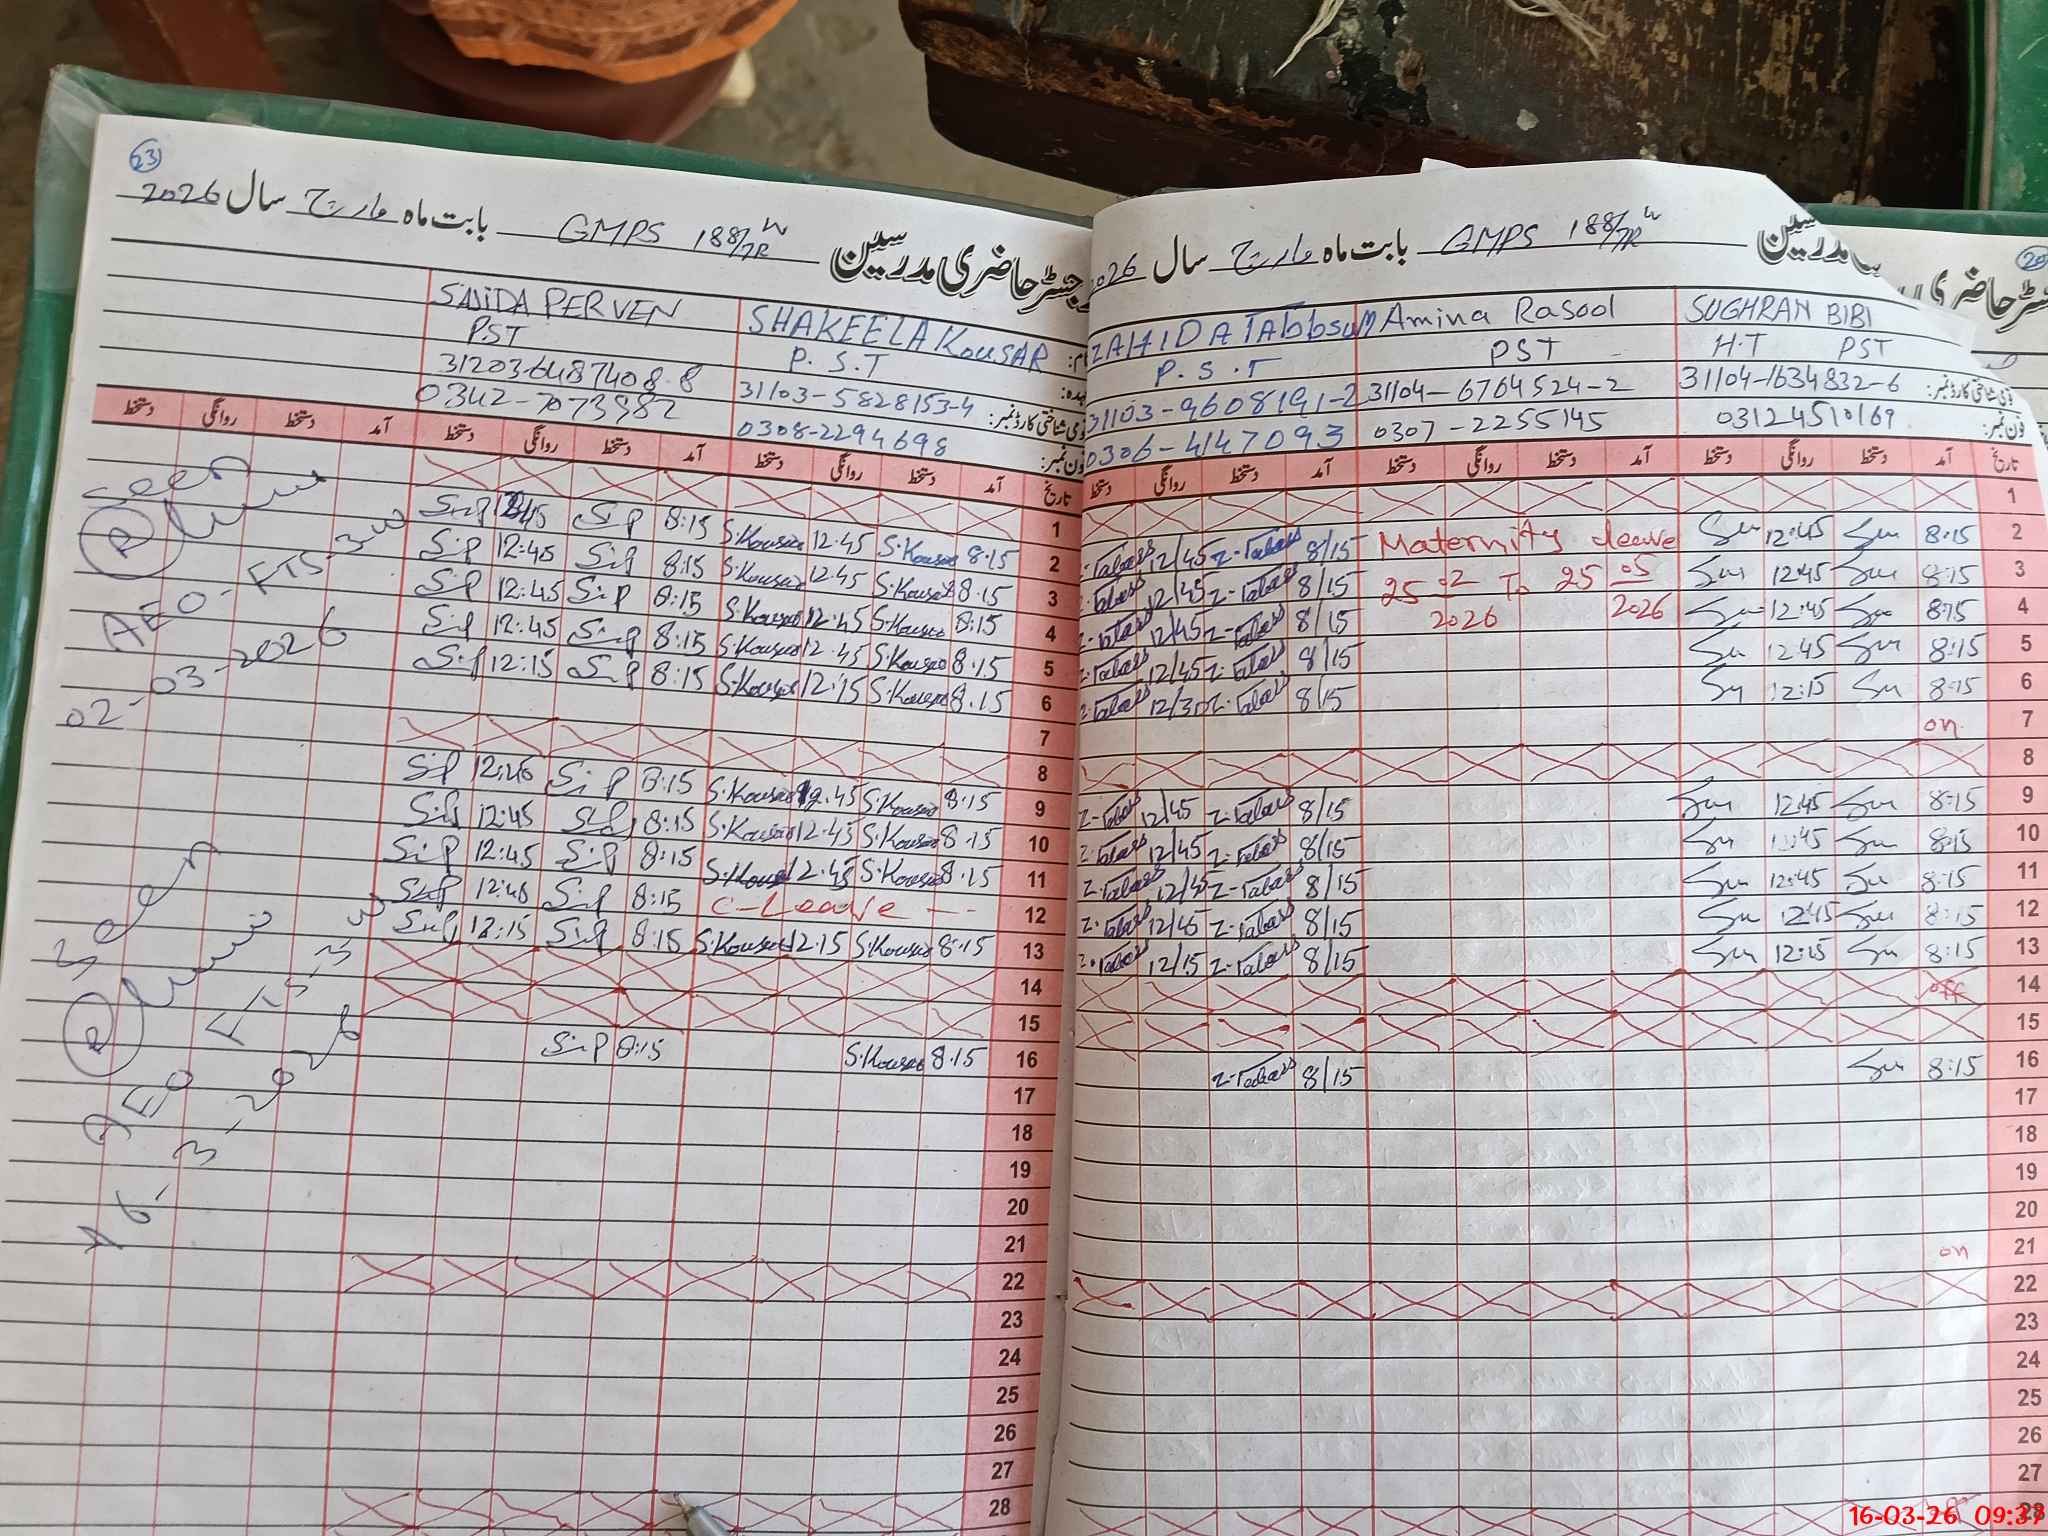 23
رجسٹر حاضری مدرسین GMPS 188/7R W بابت ماہ مارچ سال 2026
SHAKEELA KOUSAR SAJIDA PERVEEN
P.S.T PST
31103-5828153-4 31203-6487408-8
0308-2294698 0342-7073982
تاریخ آمد دستخط روانگی دستخط آمد دستخط روانگی دستخط آمد دستخط روانگی دستخط
1
2 8:15 S.Kousar 12:45 S.Kousar 8:15 12:45
3 8:15 S.Kousar 12:45 S.Kousar 8:15 12:45
4 8:15 S.Kousar 12:45 S.Kousar 8:15 12:45
5 8:15 S.Kousar 12:45 S.Kousar 8:15 12:45
6 8:15 S.Kousar 12:15 S.Kousar 8:15 12:15
7
8
9 8:15 S.Kousar 12:45 S.Kousar 8:15 12:45
10 8:15 S.Kousar 12:45 S.Kousar 8:15 12:45
11 8:15 S.Kousar 12:45 S.Kousar 8:15 12:45
12 C-Leave 8:15 12:45
13 8:15 S.Kousar 12:15 S.Kousar 8:15 12:15
14
15
16 8:15 S.Kousar 8:15
17
18
19
20
21
22
23
24
25
26
27
28
Seen
AEO-FTS-3W
02-03-2026
Seen
AEO FTS-3W
16-3-2026
مدرسین GMPS 188/7R W بابت ماہ مارچ سال 2026
SUGHRAN BIBI Amina Rasool ZAHIDA TAbbsuM
H.T PST PST P.S.T
قومی شناختی کارڈ نمبر: 31104-1634832-6 31104-6764524-2 31103-9608191-2
فون نمبر: 03124510169 0307-2255145 0306-4147093
تاریخ آمد دستخط روانگی دستخط آمد دستخط روانگی دستخط آمد دستخط روانگی دستخط
1
2 8:15 12:45 Maternity leave 8/15 Z-Tabass 12/45 Z-Tabass
3 8:15 12:45 25-02-2026 To 25-05-2026 8/15 Z-Tabass 12/45 Z-Tabass
4 8:15 12:45 8/15 Z-Tabass 12/45 Z-Tabass
5 8:15 12:45 8/15 Z-Tabass 12/45 Z-Tabass
6 8:15 12:15 8/15 Z-Tabass Z-Tabass
7 on
8
9 8:15 12:45 8/15 Z-Tabass 12/45 Z-Tabass
10 8:15 12:45 8/15 Z-Tabass 12/45 Z-Tabass
11 8:15 12:45 8/15 Z-Tabass 12/45 Z-Tabass
12 8:15 12:45 8/15 Z-Tabass 12/45 Z-Tabass
13 8:15 12:15 8/15 Z-Tabass 12/15 Z-Tabass
14 off
15
16 8:15 8/15 Z-Tabass
17
18
19
20
21 on
22
23
24
25
26
27
28
16-03-26 09:37